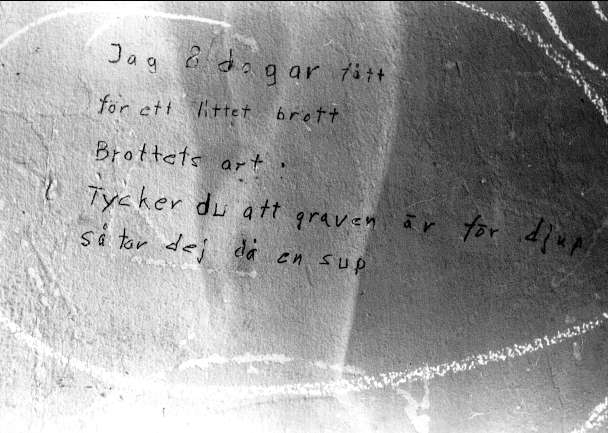 Jag 8 dagar fått
för ett littet brott
Brottets art:
Tycker du att graven är för djup
så tar dej då en sup